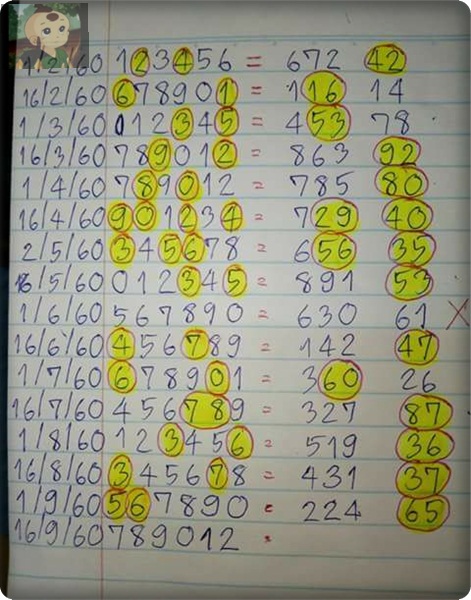 1/2/60 123456 = 672 42
16/2/60 678901 = 116 14
1/3/60 012345 = 453 78
16/3/60 789012 = 863 92
1/4/60 789012 = 785 80
16/4/60 901234 = 729 40
2/5/60 345678 = 656 35
16/5/60 012345 = 891 53
1/6/60 567890 = 630 61 X
16/6/60 456789 = 142 47
1/7/60 678901 = 360 26
16/7/60 456789 = 327 87
1/8/60 123456 = 519 36
16/8/60 345678 = 431 37
1/9/60 567890 = 224 65
16/9/60 789012 =